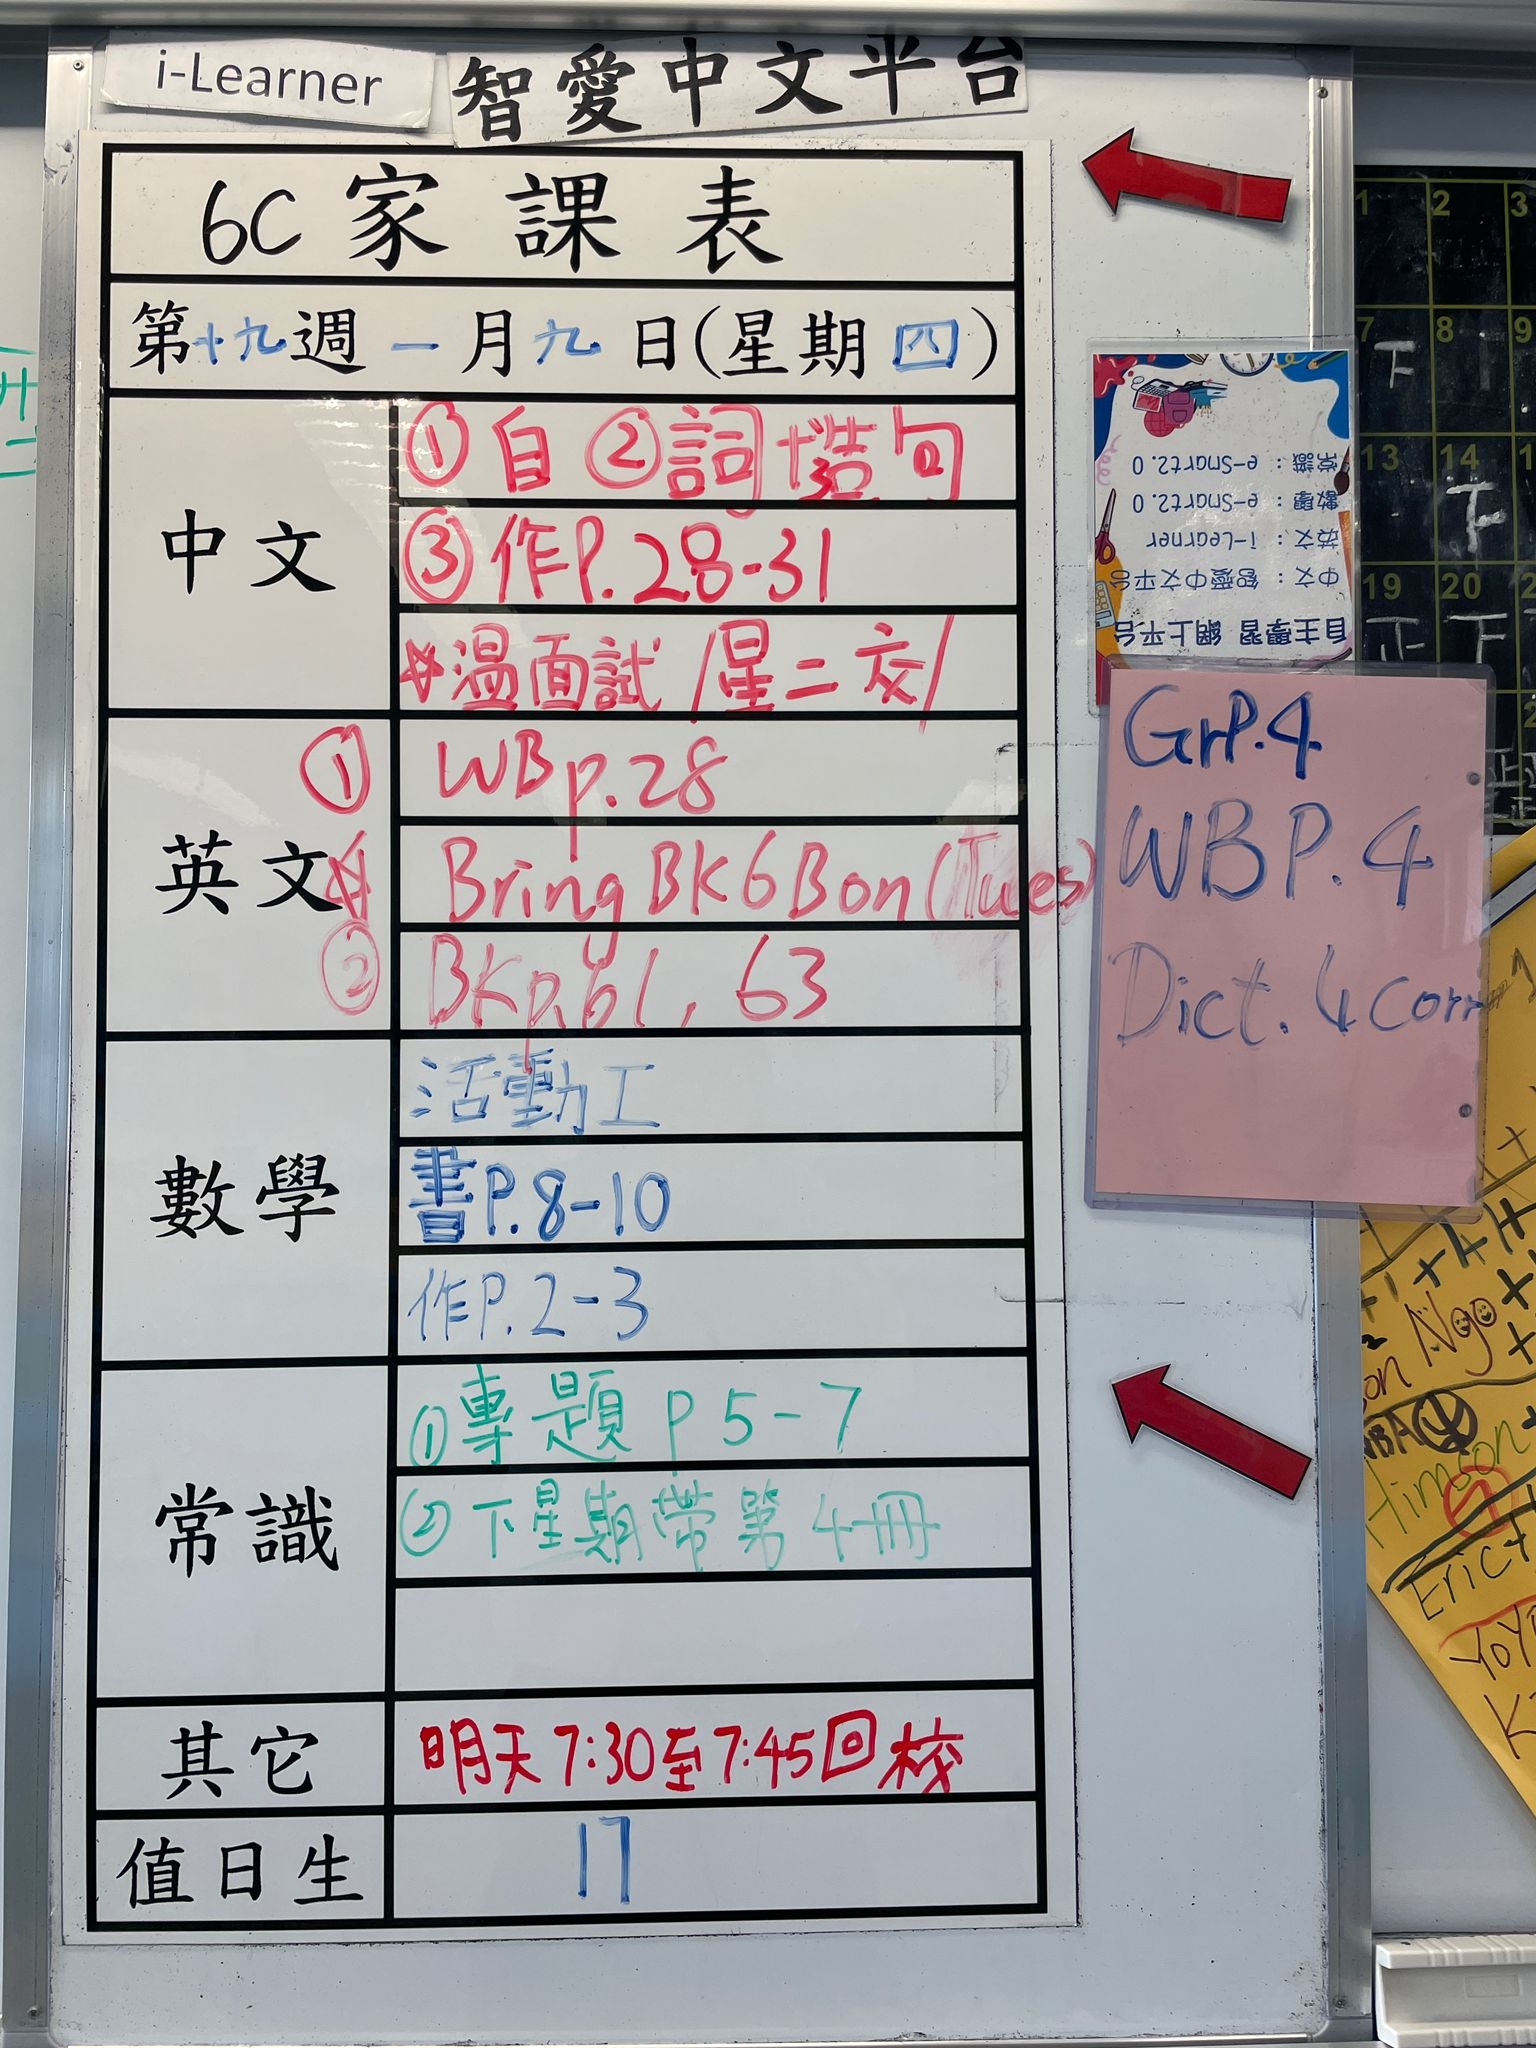 i-Learner
智愛中文平台
6C 家課表
第十九週 一月九日(星期四)
中文
①自 ②詞+造句
③作P.28-31
☆溫面試 /星二交/
英文
① WB p.28
☆ Bring BK6B on (Tues)
② BK p.61, 63
數學
活動工
書P.8-10
作P.2-3
常識
①專題 P 5-7
②下星期帶第4冊
其它
明天7:30至7:45回校
值日生
17
自主學習 網上平台
中文：智愛中文平台
英文：i-Learner
數學：e-Smart2.0
常識：e-Smart2.0
GrP.4
WBP.4
Dict. 4 corr
1 2 3
7 8 9
下
13 14
下
19 20
正 下
Ngo
NBA
Himson
Eric